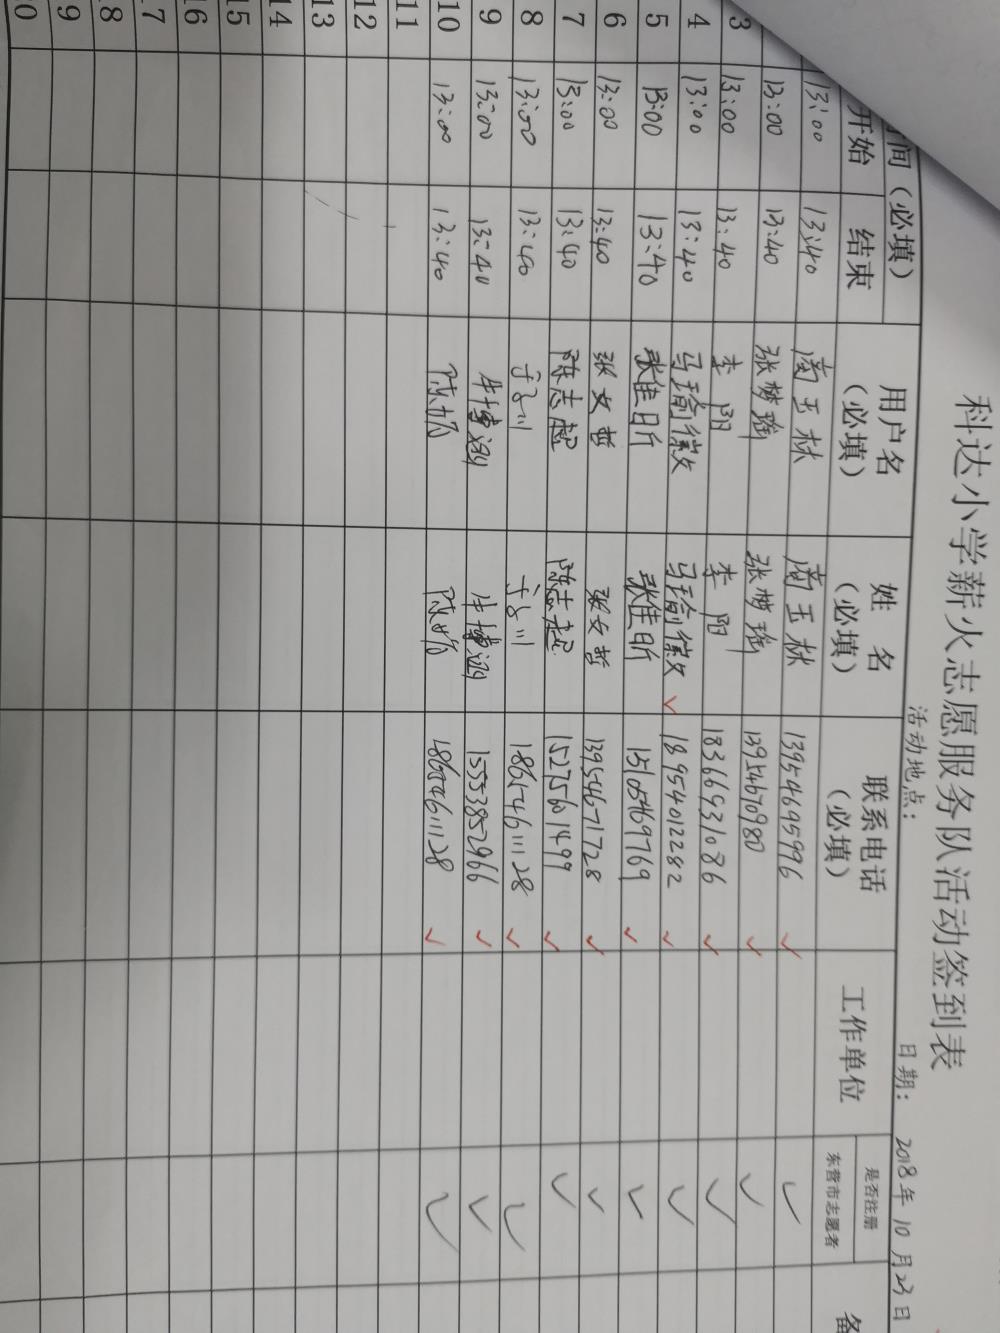 科达小学薪火志愿服务队活动签到表
活动地点： 日期： 2018年10月23日
间（必填） 用户名（必填） 姓名（必填） 联系电话（必填） 工作单位 是否注册东营市志愿者 备
开始 结束
13:00 13:40 周玉林 周玉林 13954695996 ✓ ✓
13:00 13:40 张梦瑶 张梦瑶 13954670980 ✓ ✓
3 13:00 13:40 李阳 李阳 18366931086 ✓ ✓
4 13:00 13:40 马瑜徽 马瑜徽 ✓ 18954012282 ✓ ✓
5 13:00 13:40 张佳昕 张佳昕 15105469769 ✓ ✓
6 13:00 13:40 张文哲 张文哲 13954671728 ✓ ✓
7 13:00 13:40 陈志超 陈志超 15275601499 ✓ ✓
8 13:00 13:40 18654611128 ✓ ✓
9 13:00 13:40 牛博 牛博 15553852966 ✓ ✓
10 13:00 13:40 陈 陈 18654611128 ✓ ✓
11
12
13
14
15
16
17
18
19
20